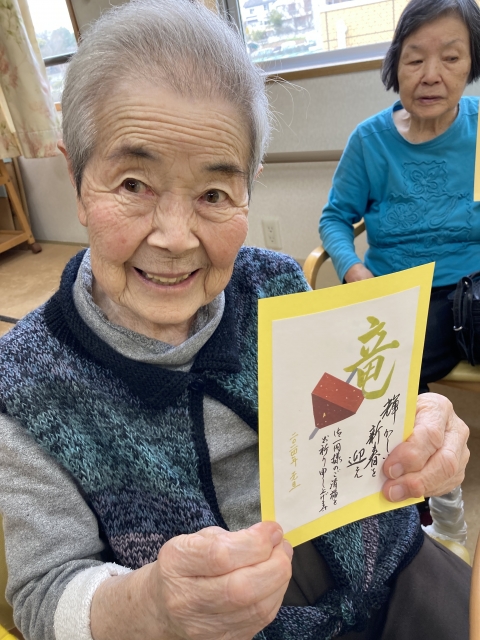 竜
輝かしい
新春を
迎え
御一同様のご清福を
お祈り申し上げます
令和六年 元旦